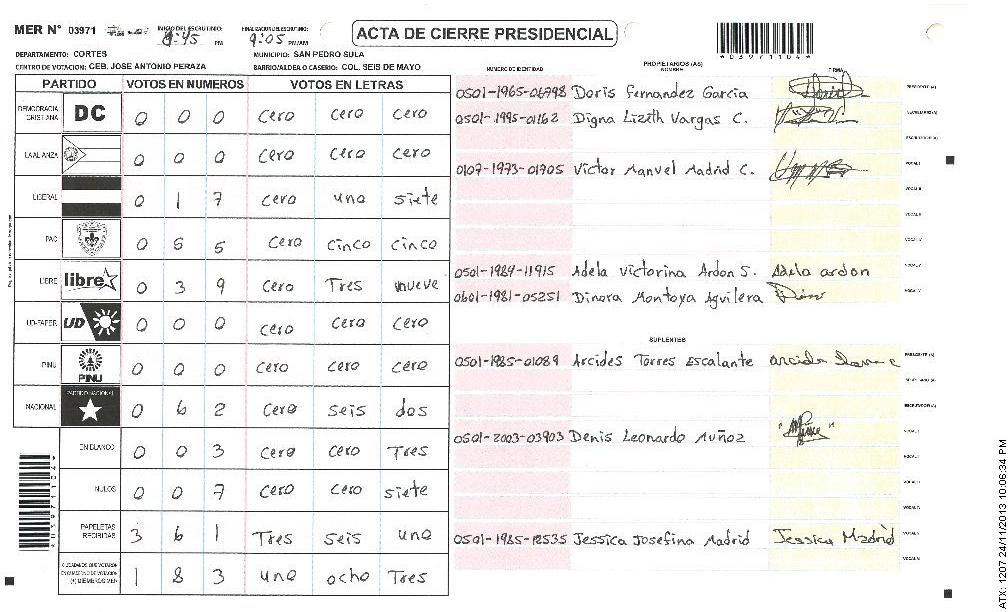 MER Nº 03971
INICIO DEL ESCRUTINIO: 8:45 PM
FINALIZACION DEL ESCRUTINIO: 9:05 PM/AM
ACTA DE CIERRE PRESIDENCIAL
*03971104*
DEPARTAMENTO: CORTES
MUNICIPIO: SAN PEDRO SULA
CENTRO DE VOTACION: CEB. JOSE ANTONIO PERAZA
BARRIO/ALDEA O CASERIO: COL. SEIS DE MAYO
PARTIDO VOTOS EN NUMEROS VOTOS EN LETRAS
DEMOCRACIA CRISTIANA DC 0 0 0 cero cero cero
LA ALIANZA 0 0 0 cero cero cero
LIBERAL 0 1 7 cero uno siete
PAC 0 5 5 cero cinco cinco
LIBRE libre 0 3 9 cero Tres nueve
UD-FAPER UD 0 0 0 cero cero cero
PINU PINU 0 0 0 cero cero cero
NACIONAL PARTIDO NACIONAL 0 6 2 cero seis dos
EN BLANCO 0 0 3 cero cero Tres
NULOS 0 0 7 cero cero siete
PAPELETAS RECIBIDAS 3 6 1 Tres seis uno
CIUDADANOS QUE VOTARON EN CUADERNO DE VOTACION (+) MIEMBROS MER 1 8 3 uno ocho Tres
*03971104*
PROPIETARIOS (AS)
NUMERO DE IDENTIDAD NOMBRE FIRMA
0501-1965-06798 Doris Fernandez Garcia PRESIDENTE (A)
0501-1995-01162 Digna Lizeth Vargas C. SECRETARIO (A)
ESCRUTADOR (A)
0107-1973-01705 Victor Manuel Madrid C. VOCAL I
VOCAL II
VOCAL III
VOCAL IV
0501-1984-11915 Adela Victorina Ardon S. Adela ardon VOCAL V
0601-1981-05251 Dinora Montoya Aguilera
SUPLENTES
0501-1985-01089 Arcides Torres Escalante PRESIDENTE (A)
SECRETARIO (A)
ESCRUTADOR (A)
0501-2003-03903 Denis Leonardo Muñoz VOCAL I
0501-1985-12535 Jessica Josefina Madrid Jessica Madrid
ATX: 1207 24/11/2013 10:06:34 PM